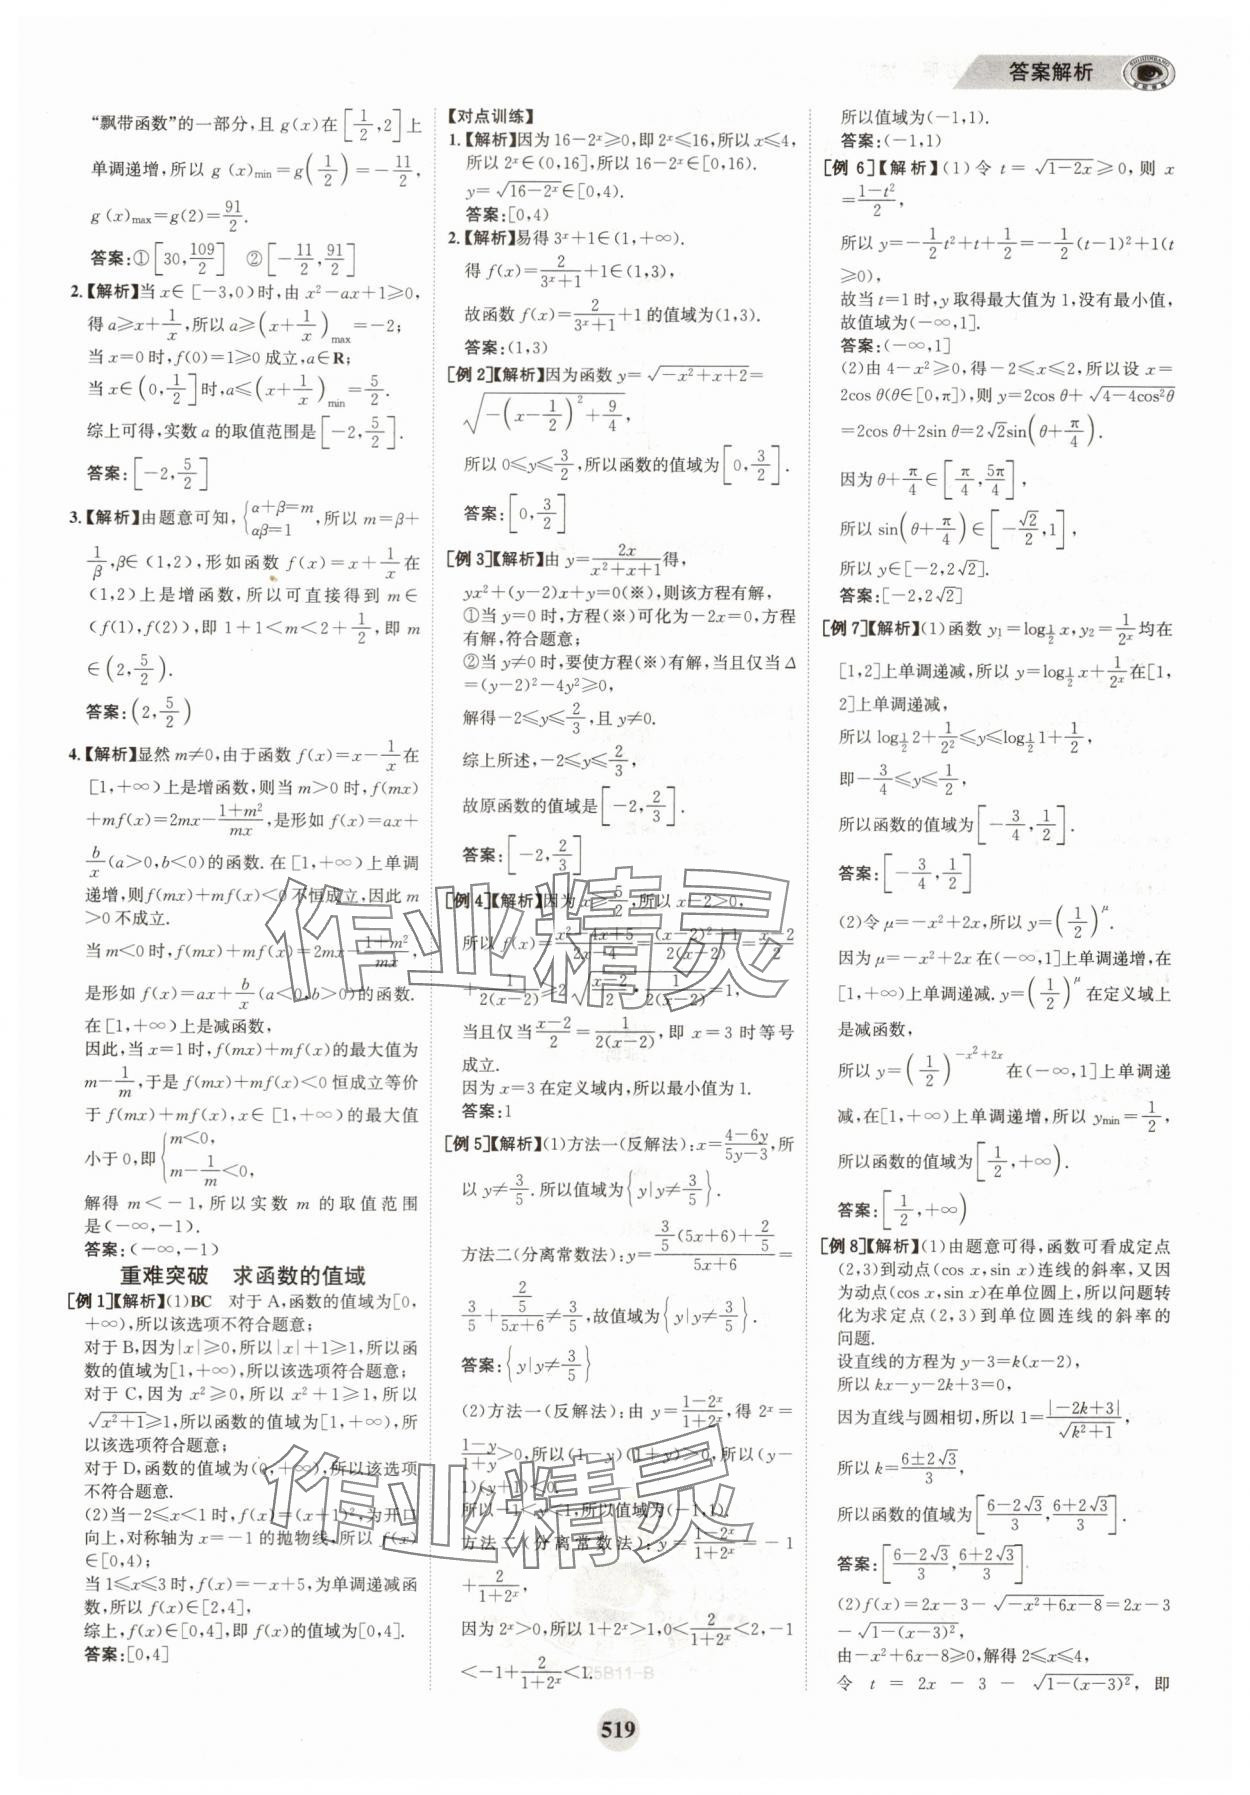 答案解析
“飘带函数”的一部分,且 g(x)在[1/2,2]上
单调递增,所以 g (x)min=g(1/2)=-11/2,
g (x)max=g(2)=91/2.
答案:①[30,109/2] ②[-11/2,91/2]
2.【解析】当 x∈[-3,0)时,由 x²-ax+1≥0,
得 a≥x+1/x,所以 a≥(x+1/x)max=-2;
当 x=0 时,f(0)=1≥0 成立,a∈R;
当 x∈(0,1/2]时,a≤(x+1/x)min=5/2.
综上可得,实数 a 的取值范围是[-2,5/2].
答案:[-2,5/2]
3.【解析】由题意可知,{α+β=m αβ=1,所以 m=β+
1/β,β∈(1,2),形如函数 f(x)=x+1/x在
(1,2)上是增函数,所以可直接得到 m∈
(f(1),f(2)),即 1+1<m<2+1/2,即 m
∈(2,5/2).
答案:(2,5/2)
4.【解析】显然 m≠0,由于函数 f(x)=x-1/x在
[1,+∞)上是增函数,则当 m>0 时,f(mx)
+mf(x)=2mx-(1+m²)/mx,是形如 f(x)=ax+
b/x(a>0,b<0)的函数.在[1,+∞)上单调
递增,则 f(mx)+mf(x)<0 不恒成立,因此 m
>0 不成立.
当 m<0 时,f(mx)+mf(x)=2mx-(1+m²)/mx,
是形如 f(x)=ax+b/x(a<0,b>0)的函数.
在[1,+∞)上是减函数,
因此,当 x=1时,f(mx)+mf(x)的最大值为
m-1/m,于是 f(mx)+mf(x)<0 恒成立等价
于 f(mx)+mf(x),x∈[1,+∞)的最大值
小于 0,即{m<0, m-1/m<0,
解得 m<-1,所以实数 m 的取值范围
是(-∞,-1).
答案:(-∞,-1)
重难突破 求函数的值域
[例 1]【解析】(1)BC 对于 A,函数的值域为[0,
+∞),所以该选项不符合题意;
对于 B,因为|x|≥0,所以|x|+1≥1,所以函
数的值域为[1,+∞),所以该选项符合题意;
对于 C,因为 x²≥0,所以 x²+1≥1,所以
√(x²+1)≥1,所以函数的值域为[1,+∞),所
以该选项符合题意;
对于 D,函数的值域为(0,+∞),所以该选项
不符合题意.
(2)当-2≤x<1 时,f(x)=(x+1)²,为开口
向上,对称轴为 x=-1 的抛物线,所以 f(x)
∈[0,4);
当 1≤x≤3 时,f(x)=-x+5,为单调递减函
数,所以 f(x)∈[2,4],
综上,f(x)∈[0,4],即 f(x)的值域为[0,4].
答案:[0,4]
【对点训练】
1.【解析】因为 16-2ˣ≥0,即 2ˣ≤16,所以 x≤4,
所以 2ˣ∈(0,16],所以 16-2ˣ∈[0,16).
y=√(16-2ˣ)∈[0,4).
答案:[0,4)
2.【解析】易得 3ˣ+1∈(1,+∞).
得 f(x)=2/(3ˣ+1)+1∈(1,3),
故函数 f(x)=2/(3ˣ+1)+1 的值域为(1,3).
答案:(1,3)
[例 2]【解析】因为函数 y=√(-x²+x+2)=
√(-(x-1/2)²+9/4),
所以 0≤y≤3/2,所以函数的值域为[0,3/2].
答案:[0,3/2]
[例 3]【解析】由 y=2x/(x²+x+1)得,
yx²+(y-2)x+y=0(※),则该方程有解,
①当 y=0 时,方程(※)可化为-2x=0,方程
有解,符合题意;
②当 y≠0 时,要使方程(※)有解,当且仅当 Δ
=(y-2)²-4y²≥0,
解得-2≤y≤2/3,且 y≠0.
综上所述,-2≤y≤2/3,
故原函数的值域是[-2,2/3].
答案:[-2,2/3]
[例 4]【解析】因为 x≥5/2,所以 x-2>0,
所以 f(x)=(x²-4x+5)/(2x-4)=((x-2)²+1)/(2(x-2))=(x-2)/2
+1/(2(x-2))≥2√((x-2)/2·1/(2(x-2)))=1,
当且仅当(x-2)/2=1/(2(x-2)),即 x=3 时等号
成立.
因为 x=3 在定义域内,所以最小值为 1.
答案:1
[例 5]【解析】(1)方法一(反解法):x=(4-6y)/(5y-3),所
以 y≠3/5.所以值域为{y|y≠3/5}.
方法二(分离常数法):y=(3/5(5x+6)+2/5)/(5x+6)=
3/5+(2/5)/(5x+6)≠3/5,所以值域为{y|y≠3/5}.
答案:{y|y≠3/5}
(2)方法一(反解法):由 y=(1-2ˣ)/(1+2ˣ),得 2ˣ=
(1-y)/(1+y)>0,所以(1-y)(1+y)>0,所以(y-
1)(y+1)<0.
所以-1<y<1,所以值域为(-1,1).
方法二(分离常数法):y=(1-2ˣ)/(1+2ˣ)=-1
+2/(1+2ˣ),
因为 2ˣ>0,所以 1+2ˣ>1,0<2/(1+2ˣ)<2,-1
<-1+2/(1+2ˣ)<1.
所以值域为(-1,1).
答案:(-1,1)
[例 6]【解析】(1)令 t=√(1-2x)≥0,则 x
=(1-t²)/2,
所以 y=-1/2t²+t+1/2=-1/2(t-1)²+1(t
≥0),
故当 t=1时,y 取得最大值为 1,没有最小值,
故值域为(-∞,1].
答案:(-∞,1]
(2)由 4-x²≥0,得-2≤x≤2,所以设 x=
2cos θ(θ∈[0,π]),则 y=2cos θ+√(4-4cos²θ)
=2cos θ+2sin θ=2√2sin(θ+π/4).
因为 θ+π/4∈[π/4,5π/4],
所以 sin(θ+π/4)∈[-√2/2,1],
所以 y∈[-2,2√2].
答案:[-2,2√2]
[例 7]【解析】(1)函数 y₁=log½ x,y₂=1/2ˣ均在
[1,2]上单调递减,所以 y=log½ x+1/2ˣ在[1,
2]上单调递减,
所以 log½ 2+1/2²≤y≤log½ 1+1/2,
即-3/4≤y≤1/2,
所以函数的值域为[-3/4,1/2].
答案:[-3/4,1/2]
(2)令 μ=-x²+2x,所以 y=(1/2)^μ.
因为 μ=-x²+2x 在(-∞,1]上单调递增,在
[1,+∞)上单调递减.y=(1/2)^μ 在定义域上
是减函数,
所以 y=(1/2)^(-x²+2x) 在(-∞,1]上单调递
减,在[1,+∞)上单调递增,所以 ymin=1/2,
所以函数的值域为[1/2,+∞).
答案:[1/2,+∞)
[例 8]【解析】(1)由题意可得,函数可看成定点
(2,3)到动点(cos x,sin x)连线的斜率,又因
为动点(cos x,sin x)在单位圆上,所以问题转
化为求定点(2,3)到单位圆连线的斜率的
问题.
设直线的方程为 y-3=k(x-2),
所以 kx-y-2k+3=0,
因为直线与圆相切,所以 1=|-2k+3|/√(k²+1),
所以 k=(6±2√3)/3,
所以函数的值域为[(6-2√3)/3,(6+2√3)/3].
答案:[(6-2√3)/3,(6+2√3)/3]
(2)f(x)=2x-3-√(-x²+6x-8)=2x-3
-√(1-(x-3)²),
由-x²+6x-8≥0,解得 2≤x≤4,
令 t=2x-3-√(1-(x-3)²),即
519
作业精灵
作业精灵